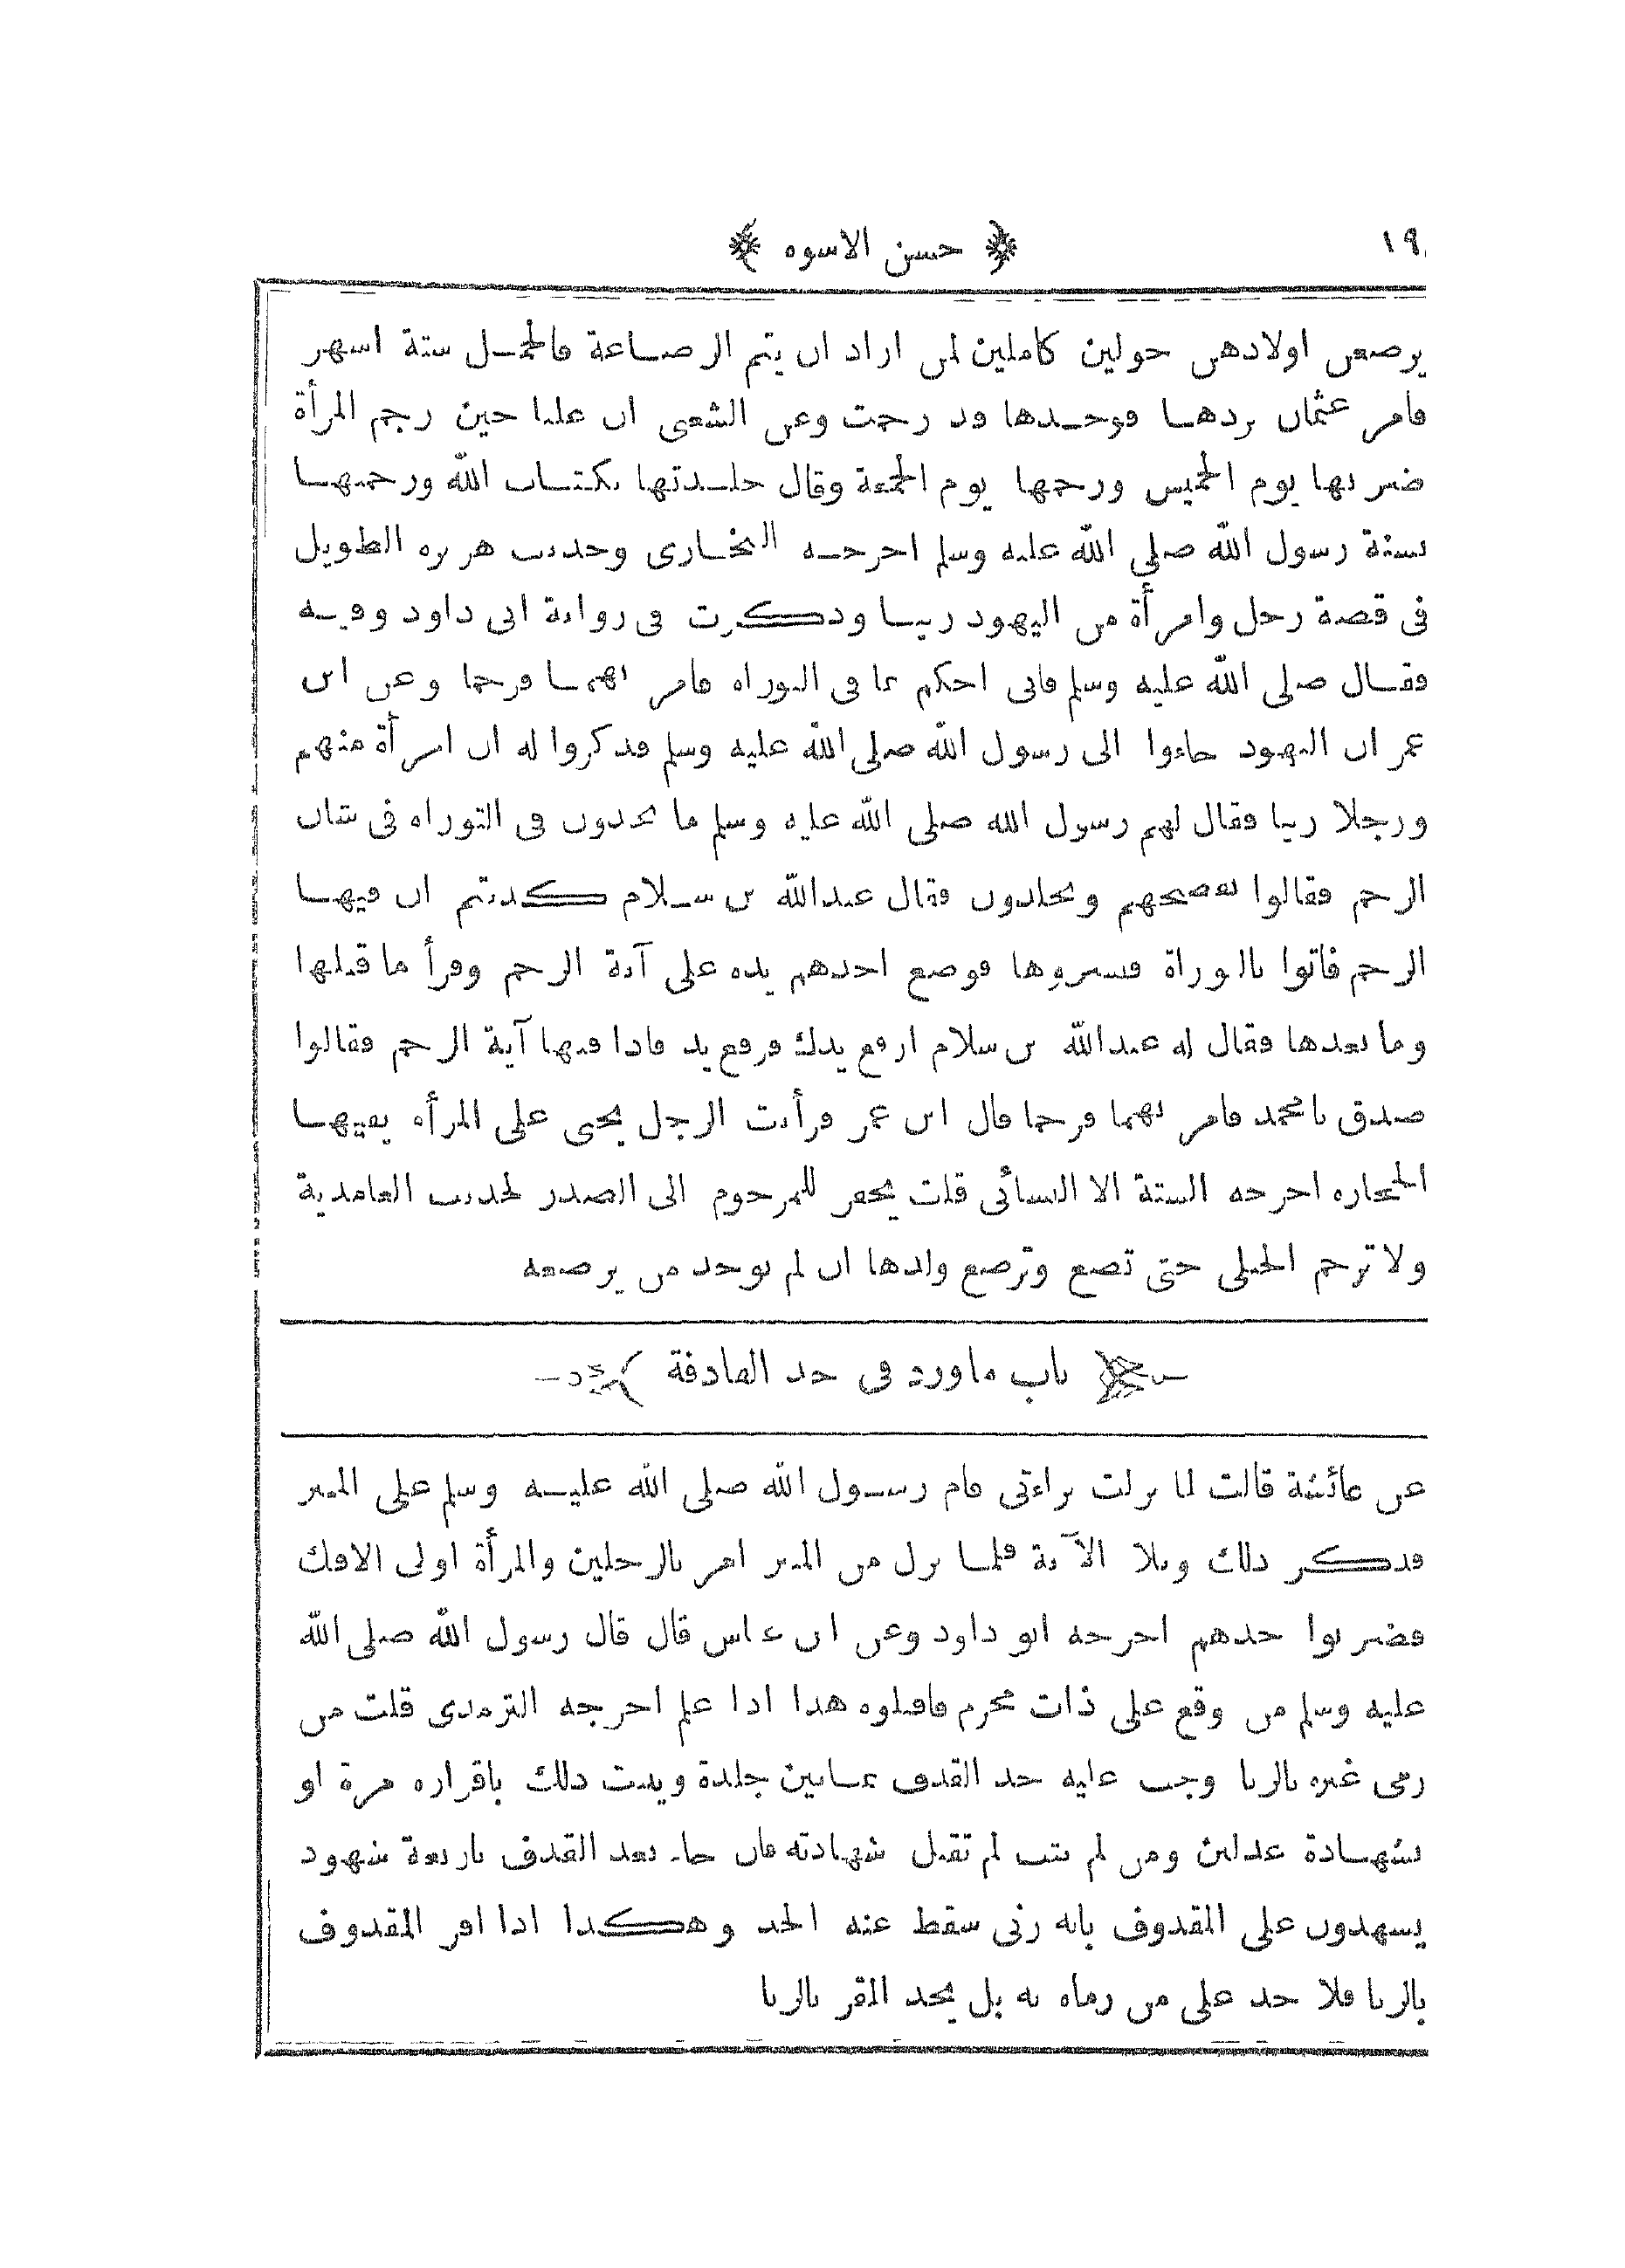 ١٩
﴿ حسن الاسوه ﴾
يرضعن اولادهن حولين كاملين لمن اراد ان يتم الرضاعة فالحمل ستة اشهر
فامر عثمان بردها فوجدها قد رجمت وعن الشعبى ان عليا حين رجم المرأة
ضربها يوم الخميس ورجمها يوم الجمعة وقال جلدتها بكتاب الله ورجمتها
بسنة رسول الله صلى الله عليه وسلم اخرجه البخارى وحديث هريره الطويل
فى قصة رجل وامرأة من اليهود زنيا وذكرت فى رواية ابى داود وفيه
فقال صلى الله عليه وسلم فانى احكم بما فى التوراه فامر بهما فرجما وعن ابن
عمر ان اليهود جاءوا الى رسول الله صلى الله عليه وسلم فذكروا له ان امرأة منهم
ورجلا زنيا فقال لهم رسول الله صلى الله عليه وسلم ما تجدون فى التوراه فى شان
الرجم فقالوا نفضحهم ويجلدون فقال عبدالله بن سلام كذبتم ان فيها
الرجم فاتوا بالتوراة فنشروها فوضع احدهم يده على آية الرجم وقرأ ما قبلها
وما بعدها فقال له عبدالله بن سلام ارفع يدك فرفع يد فاذا فيها آية الرجم فقالوا
صدق يا محمد فامر بهما فرجما قال ابن عمر فرأيت الرجل يحنى على المرأه يقيها
الحجاره اخرجه الستة الا النسائى قلت يحفر للمرجوم الى الصدر لحديث الغامدية
ولا ترجم الحبلى حتى تضع وترضع ولدها ان لم يوجد من يرضعه
﴿ باب ما ورد فى حد القاذفة ﴾
عن عائشة قالت لما نزلت براءتى قام رسول الله صلى الله عليه وسلم على المنبر
فذكر ذلك وتلا الآية فلما نزل من المنبر امر بالرجلين والمرأة اولى الافك
فضربوا حدهم اخرجه ابو داود وعن ابن عباس قال قال رسول الله صلى الله
عليه وسلم من وقع على ذات محرم فاقتلوه هذا اذا علم اخرجه الترمذى قلت من
رمى غيره بالزنا وجب عليه حد القذف ثمانين جلدة ويثبت ذلك باقراره مرة او
بشهادة عدلين ومن لم يتب لم تقبل شهادته فان جاء بعد القذف باربعة شهود
يشهدون على المقذوف بانه زنى سقط عنه الحد وهكذا اذا اقر المقذوف
بالزنا فلا حد على من رماه به بل يحد المقر بالزنا